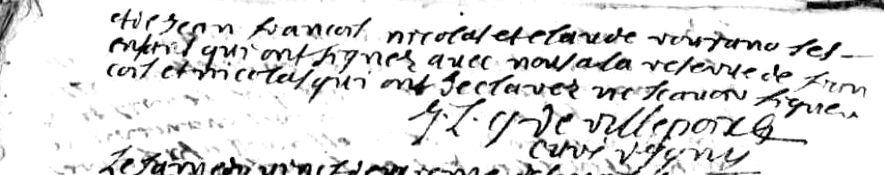 et de Jean francois nicolas et claude ses
enfans qui ont signez avec nous a la reserve de fran
cois et nicolas qui ont declarez ne scavoir signer
de villepoix
curé
Le samedy vingt